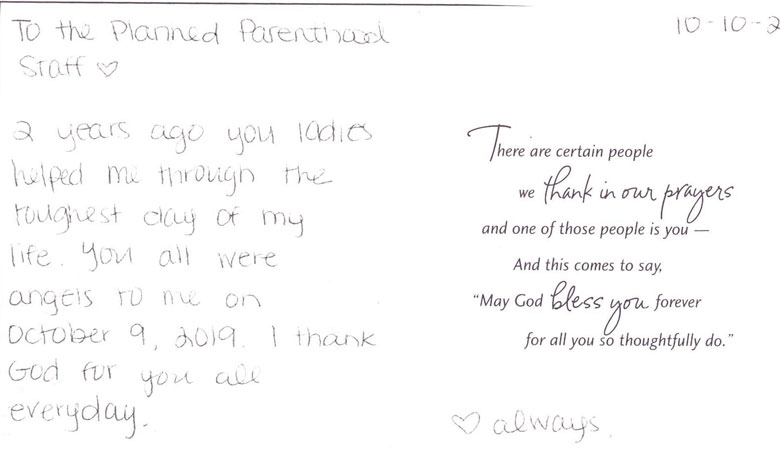 To the Planned Parenthood
Staff ♡
10-10-2
2 years ago you ladies
helped me through the
toughest day of my
life. You all were
angels to me on
October 9, 2019. I thank
God for you all
everyday.
There are certain people
we thank in our prayers
and one of those people is you —
And this comes to say,
“May God bless you forever
for all you so thoughtfully do.”
♡ always.